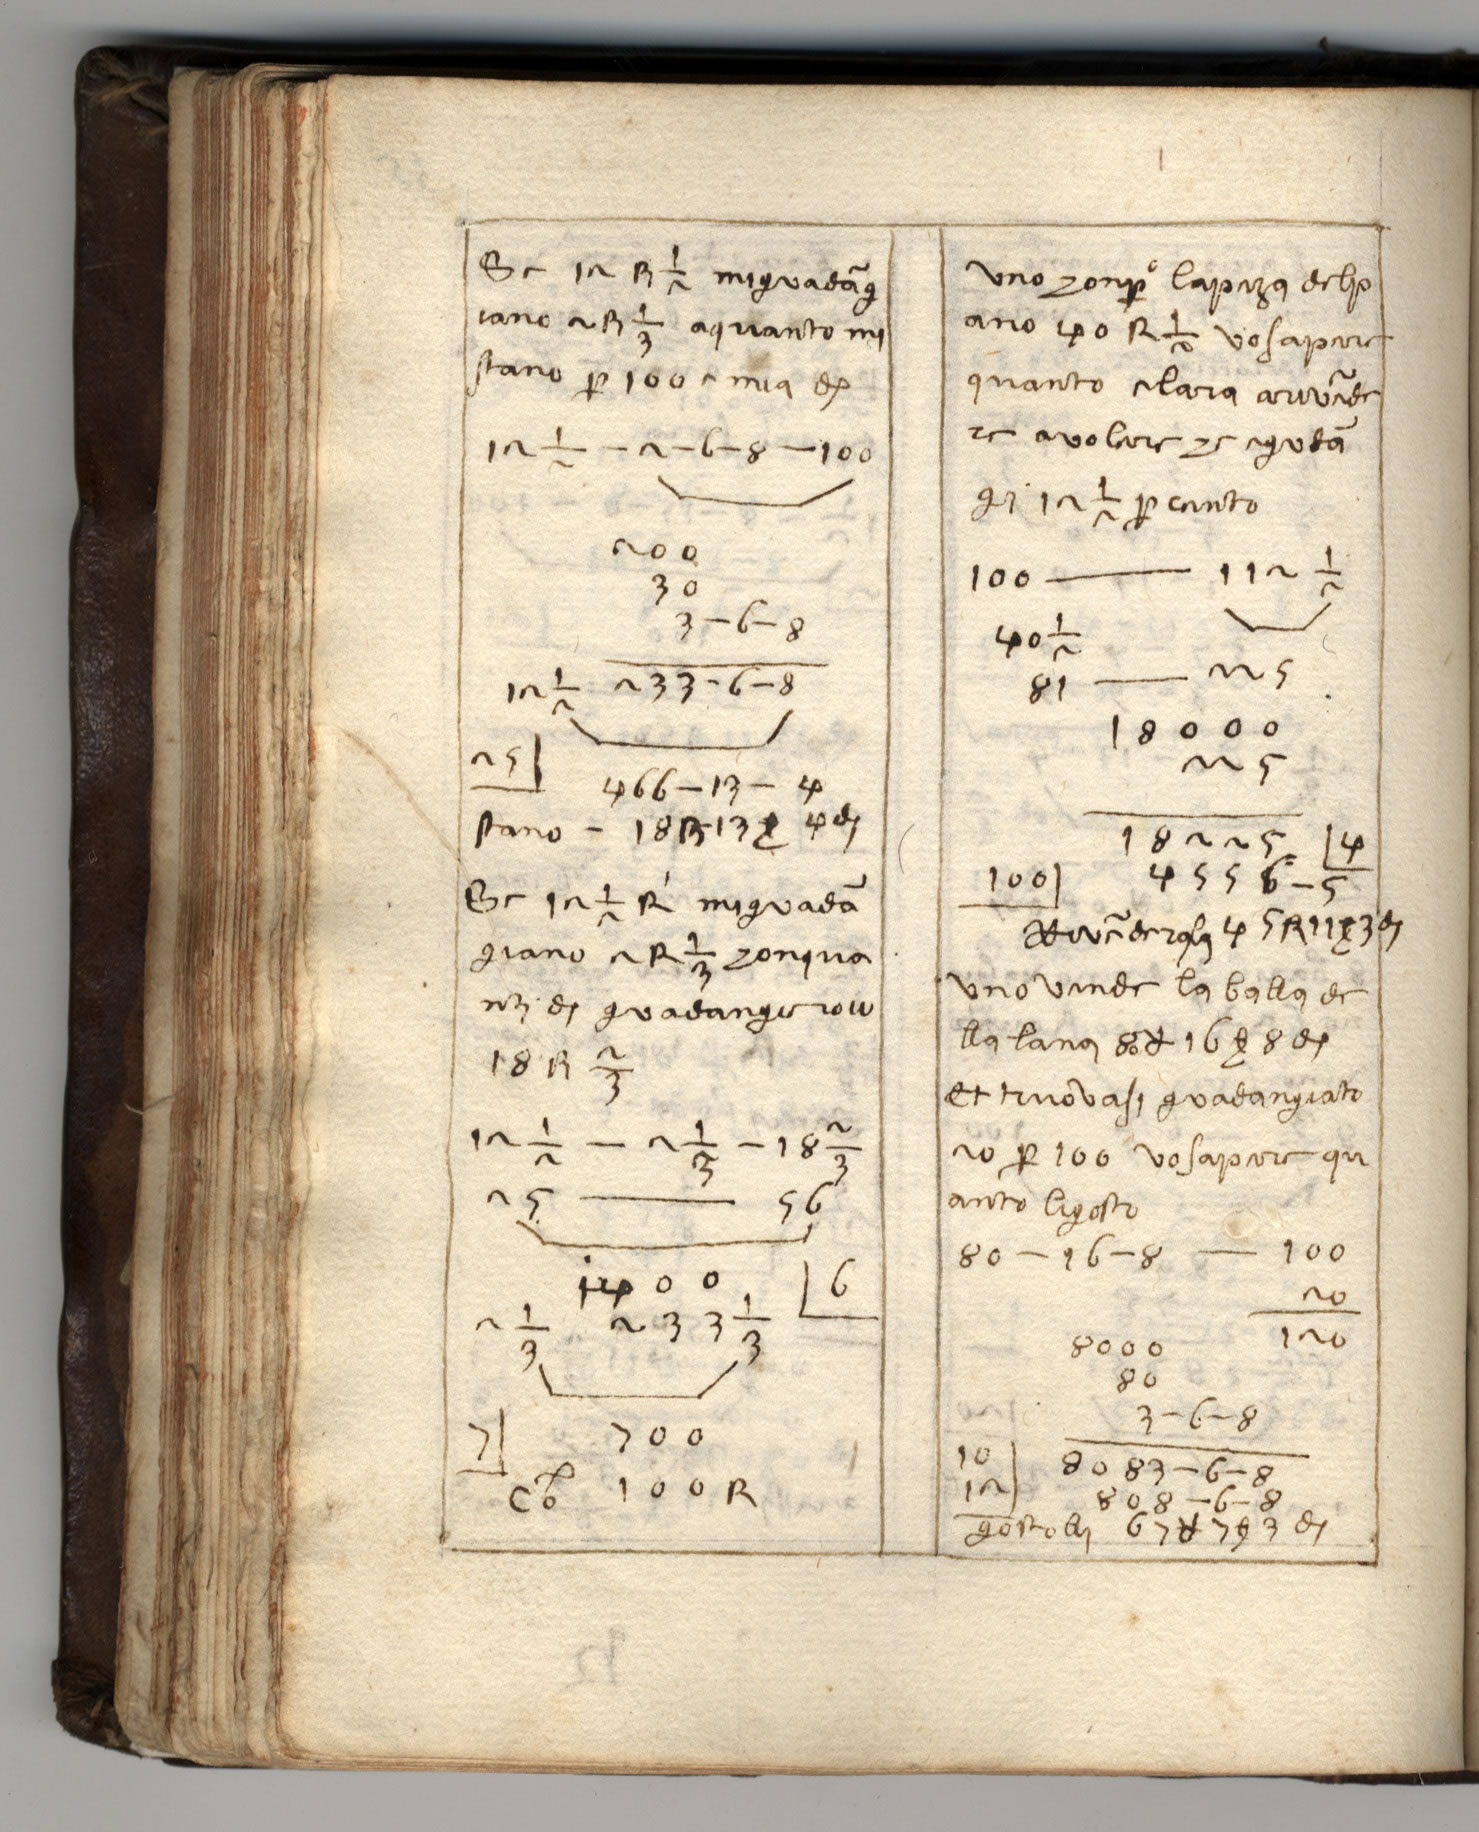 Se 12 R 1/2 mi guadãg
iano 2 R 1/3 a quanto mi
stano p 100 e mia
12 1/2 — 2 — 6 — 8 — 100
200
30
3 — 6 — 8
12 1/2 233 — 6 — 8
25
466 — 13 — 4
stano — 18 R 13 4
Se 12 1/2 R mi guadã
giano 2 R 1/3 zonqua
guadangiero
18 R 2/3
12 1/2 — 2 1/3 — 18 2/3
25 — 56
1400 6
2 1/3 233 1/3
7 700
100 R
Uno lapeza del p
ano 40 R 1/2 vo sapere
quanto elara
re a volere ze
gi 12 1/2 p cento
100 — 112 1/2
40 1/2
81 — 225
18000
225
18225 4
100 4556 — 5
45 R 11 3
Uno vende la balla de
lla lana 80 16 8
Et truovasi guadangiato
20 p 100 vo sapere qu
anto li gosto
80 — 16 — 8 — 100
20
8000 120
80
3 — 6 — 8
10 8083 — 6 — 8
12 808 — 6 — 8
gostolli 67 7 3